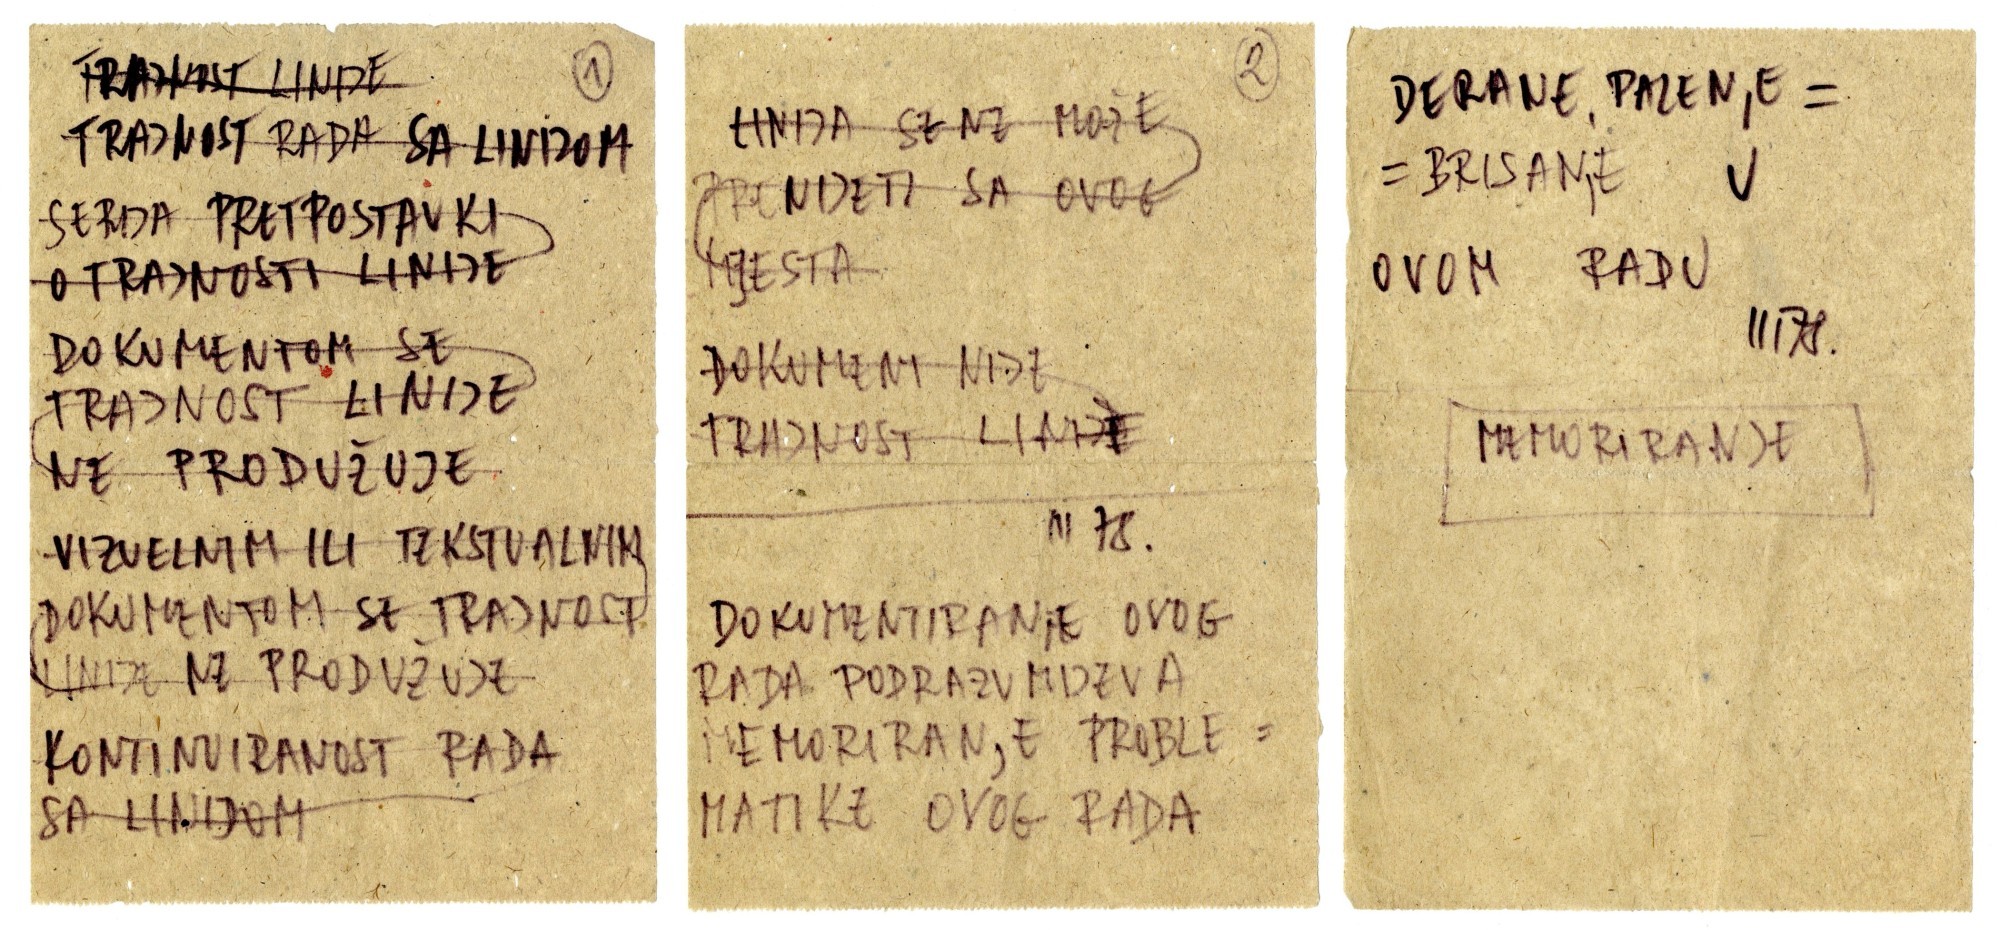 1
TRAJNOST LINIJE
TRAJNOST RADA SA LINIJOM
SERIJA PRETPOSTAVKI
O TRAJNOSTI LINIJE
DOKUMENTOM SE
TRAJNOST LINIJE
NE PRODUŽUJE
VIZUELNIM ILI TEKSTUALNIM
DOKUMENTOM SE TRAJNOST
LINIJE NE PRODUŽUJE
KONTINUIRANOST RADA
SA LINIJOM
2
LINIJA SE NE MOŽE
PRENIJETI SA OVOG
MJESTA
DOKUMENT NIJE
TRAJNOST LINIJE
III 78.
DOKUMENTIRANJE OVOG
RADA PODRAZUMIJEVA
MEMORIRANJE PROBLE =
MATIKE OVOG RADA
DERANJE, PALENJE =
= BRISANJE U
OVOM RADU
III 78.
MEMORIRANJE